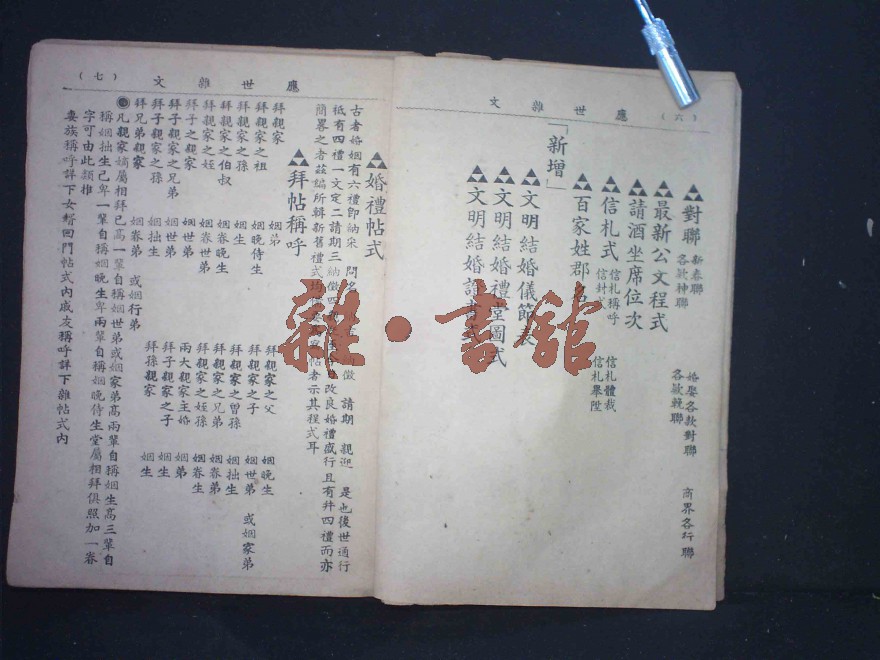 應世雜文
（六）
對聯 新春聯 婚娶各款對聯 商界各行聯
各款神聯 各款輓聯
最新公文程式
請酒坐席位次
信札式 信札稱呼 信札體裁
信封式 信札舉陞
百家姓郡名
「新增」
文明結婚儀節表
文明結婚禮堂圖式
文明結婚證書式
應世雜文
（七）
婚禮帖式
古者婚姻有六禮即納采 問名 徵 請期 親迎 是也後世通行
祗有四禮一文定二請期三納徵四 改良婚禮盛行且有并四禮而亦
簡畧之者茲編所輯新舊禮式均 帖者示其程式耳
拜帖稱呼
拜親家 姻弟 拜親家之父 姻晚生
拜親家之祖 姻晚侍生 拜親家之子 姻世弟 或姻家弟
拜親家之孫 姻生 拜親家之曾孫 姻拙生
拜親家之伯叔 姻眷晚生 拜親家之兄弟 姻眷弟
拜親家之姪 姻眷世弟 拜親家之姪孫 姻眷生
拜子之親家 姻世弟 兩大親家主婚 姻弟
拜子親家之兄弟 姻世弟 拜子親家之子 姻生
拜子親家之孫 姻拙生 拜孫親家 姻生
拜兄弟親家 姻眷弟 或姻行弟
凡親家嫡屬相拜已高一輩自稱姻世弟或姻家弟高兩輩自稱姻生高三輩自
稱姻拙生已卑一輩自稱姻晚生卑兩輩自稱姻晚侍生堂屬相拜俱照加一眷
字可由此類推
妻族稱呼詳下女壻回門帖式內戚友稱呼詳下雜帖式內
雜·書館